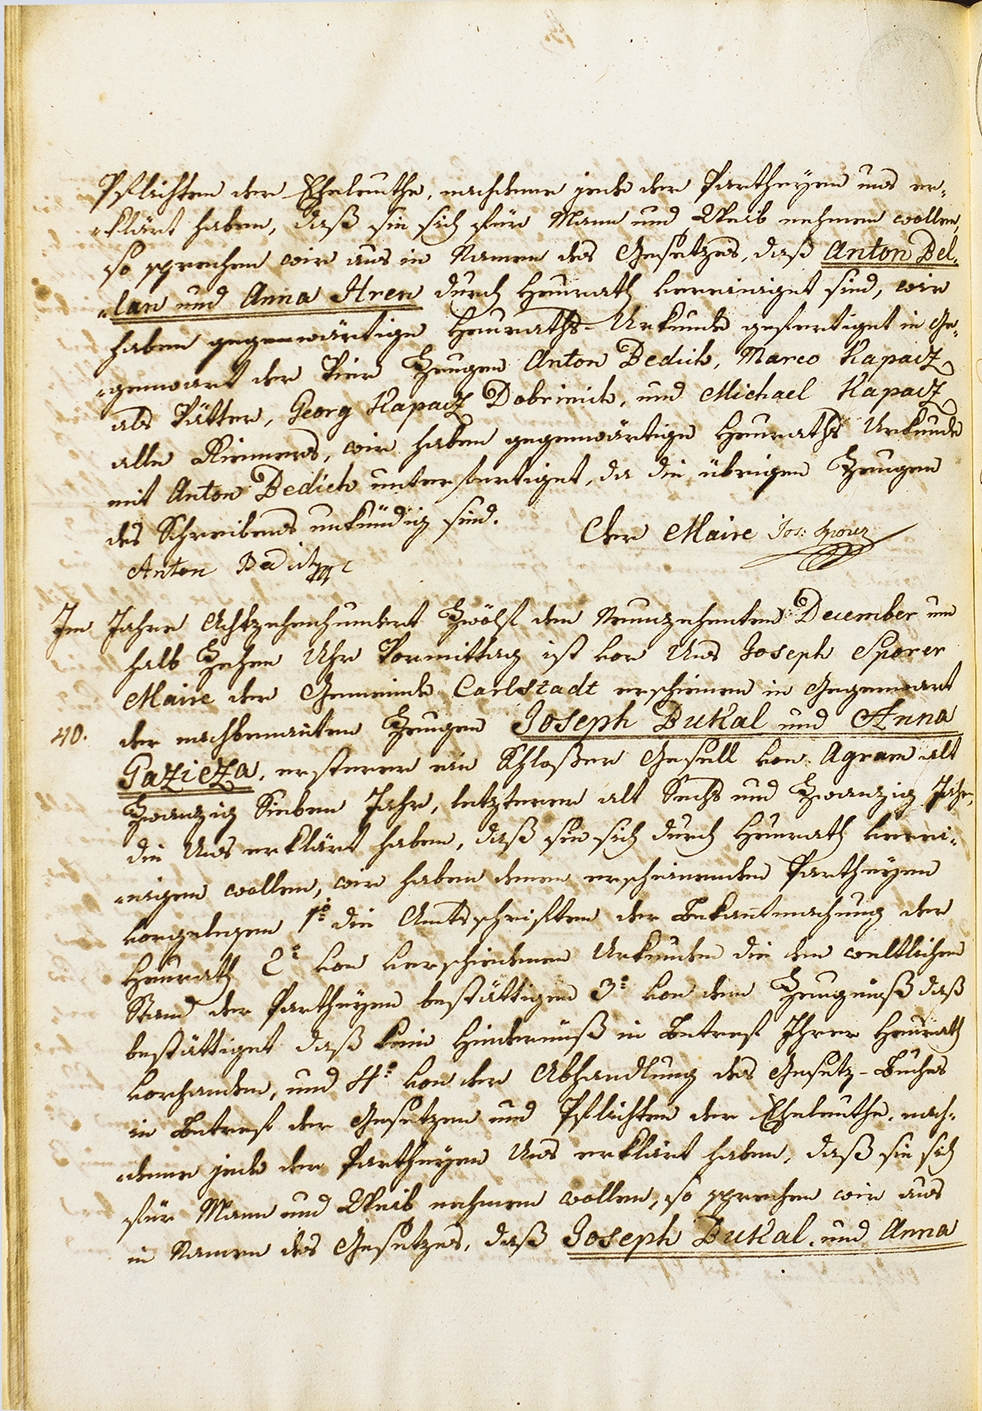 Pflichten der Eheleuthe, nachdeme jede der Partheyen uns er„
„klärt haben, daß sie sich für Mann und Weib nehmen wollen,
so sprechen wir aus in Namen des Gesetzes, daß Anton Bel„
„lan und Anna Hren durch Heurath vereiniget sind, wir
haben gegenwärtige Heuraths-Urkunde gefertiget in Ge„
„genwart der Vier Zeugen Anton Dedich, Marco Kapacz
als Vätter, Georg Kapacz Dobrinich, und Michael Kapacz
alle Riemers, wir haben gegenwärtige Heuraths Urkunde
mit Anton Dedich unterfertiget, da die übrigen Zeugen
des Schreibens unkündig sind.
Der Maire Jos: Sporer
Anton Dedich
Im Jahre Achtzehenhundert Zwölf den Neunzehenten December um
halb Zehen Uhr Vormittag ist vor Uns Joseph Sporer
Maire der Gemeinde Carlstadt erschienen in Gegenwart
40. der nachbenanten Zeugen Joseph Bukal und Anna
Gazieza, ersterer ein Schloßer Gesell von Agram alt
Zwanzig Sieben Jahr, letzterer alt Sechs und Zwanzig Jahr,
die Uns erklärt haben, daß sie sich durch Heurath verei„
„nigen wollen, wir haben denen erscheinenden Partheyen
vorgelegen 1º die Amtsschriften der Bekantmachung der
Heurath 2º von verschiedenen Urkunden die den weltlichen
Stand der Partheyen bestättigen 3º von dem Zeugniß daß
bestättiget daß kein Hinderniß in Betref Ihrer Heurath
vorhanden, und 4º von der Abhandlung des Gesetz-Buches
in Betref der Gesetzen und Pflichten der Eheleuthe, nach„
„deme jede der Partheyen Uns erklärt haben, daß sie sich
für Mann und Weib nehmen wollen, so sprechen wir aus
in Namen des Gesetzes, daß Joseph Bukal und Anna